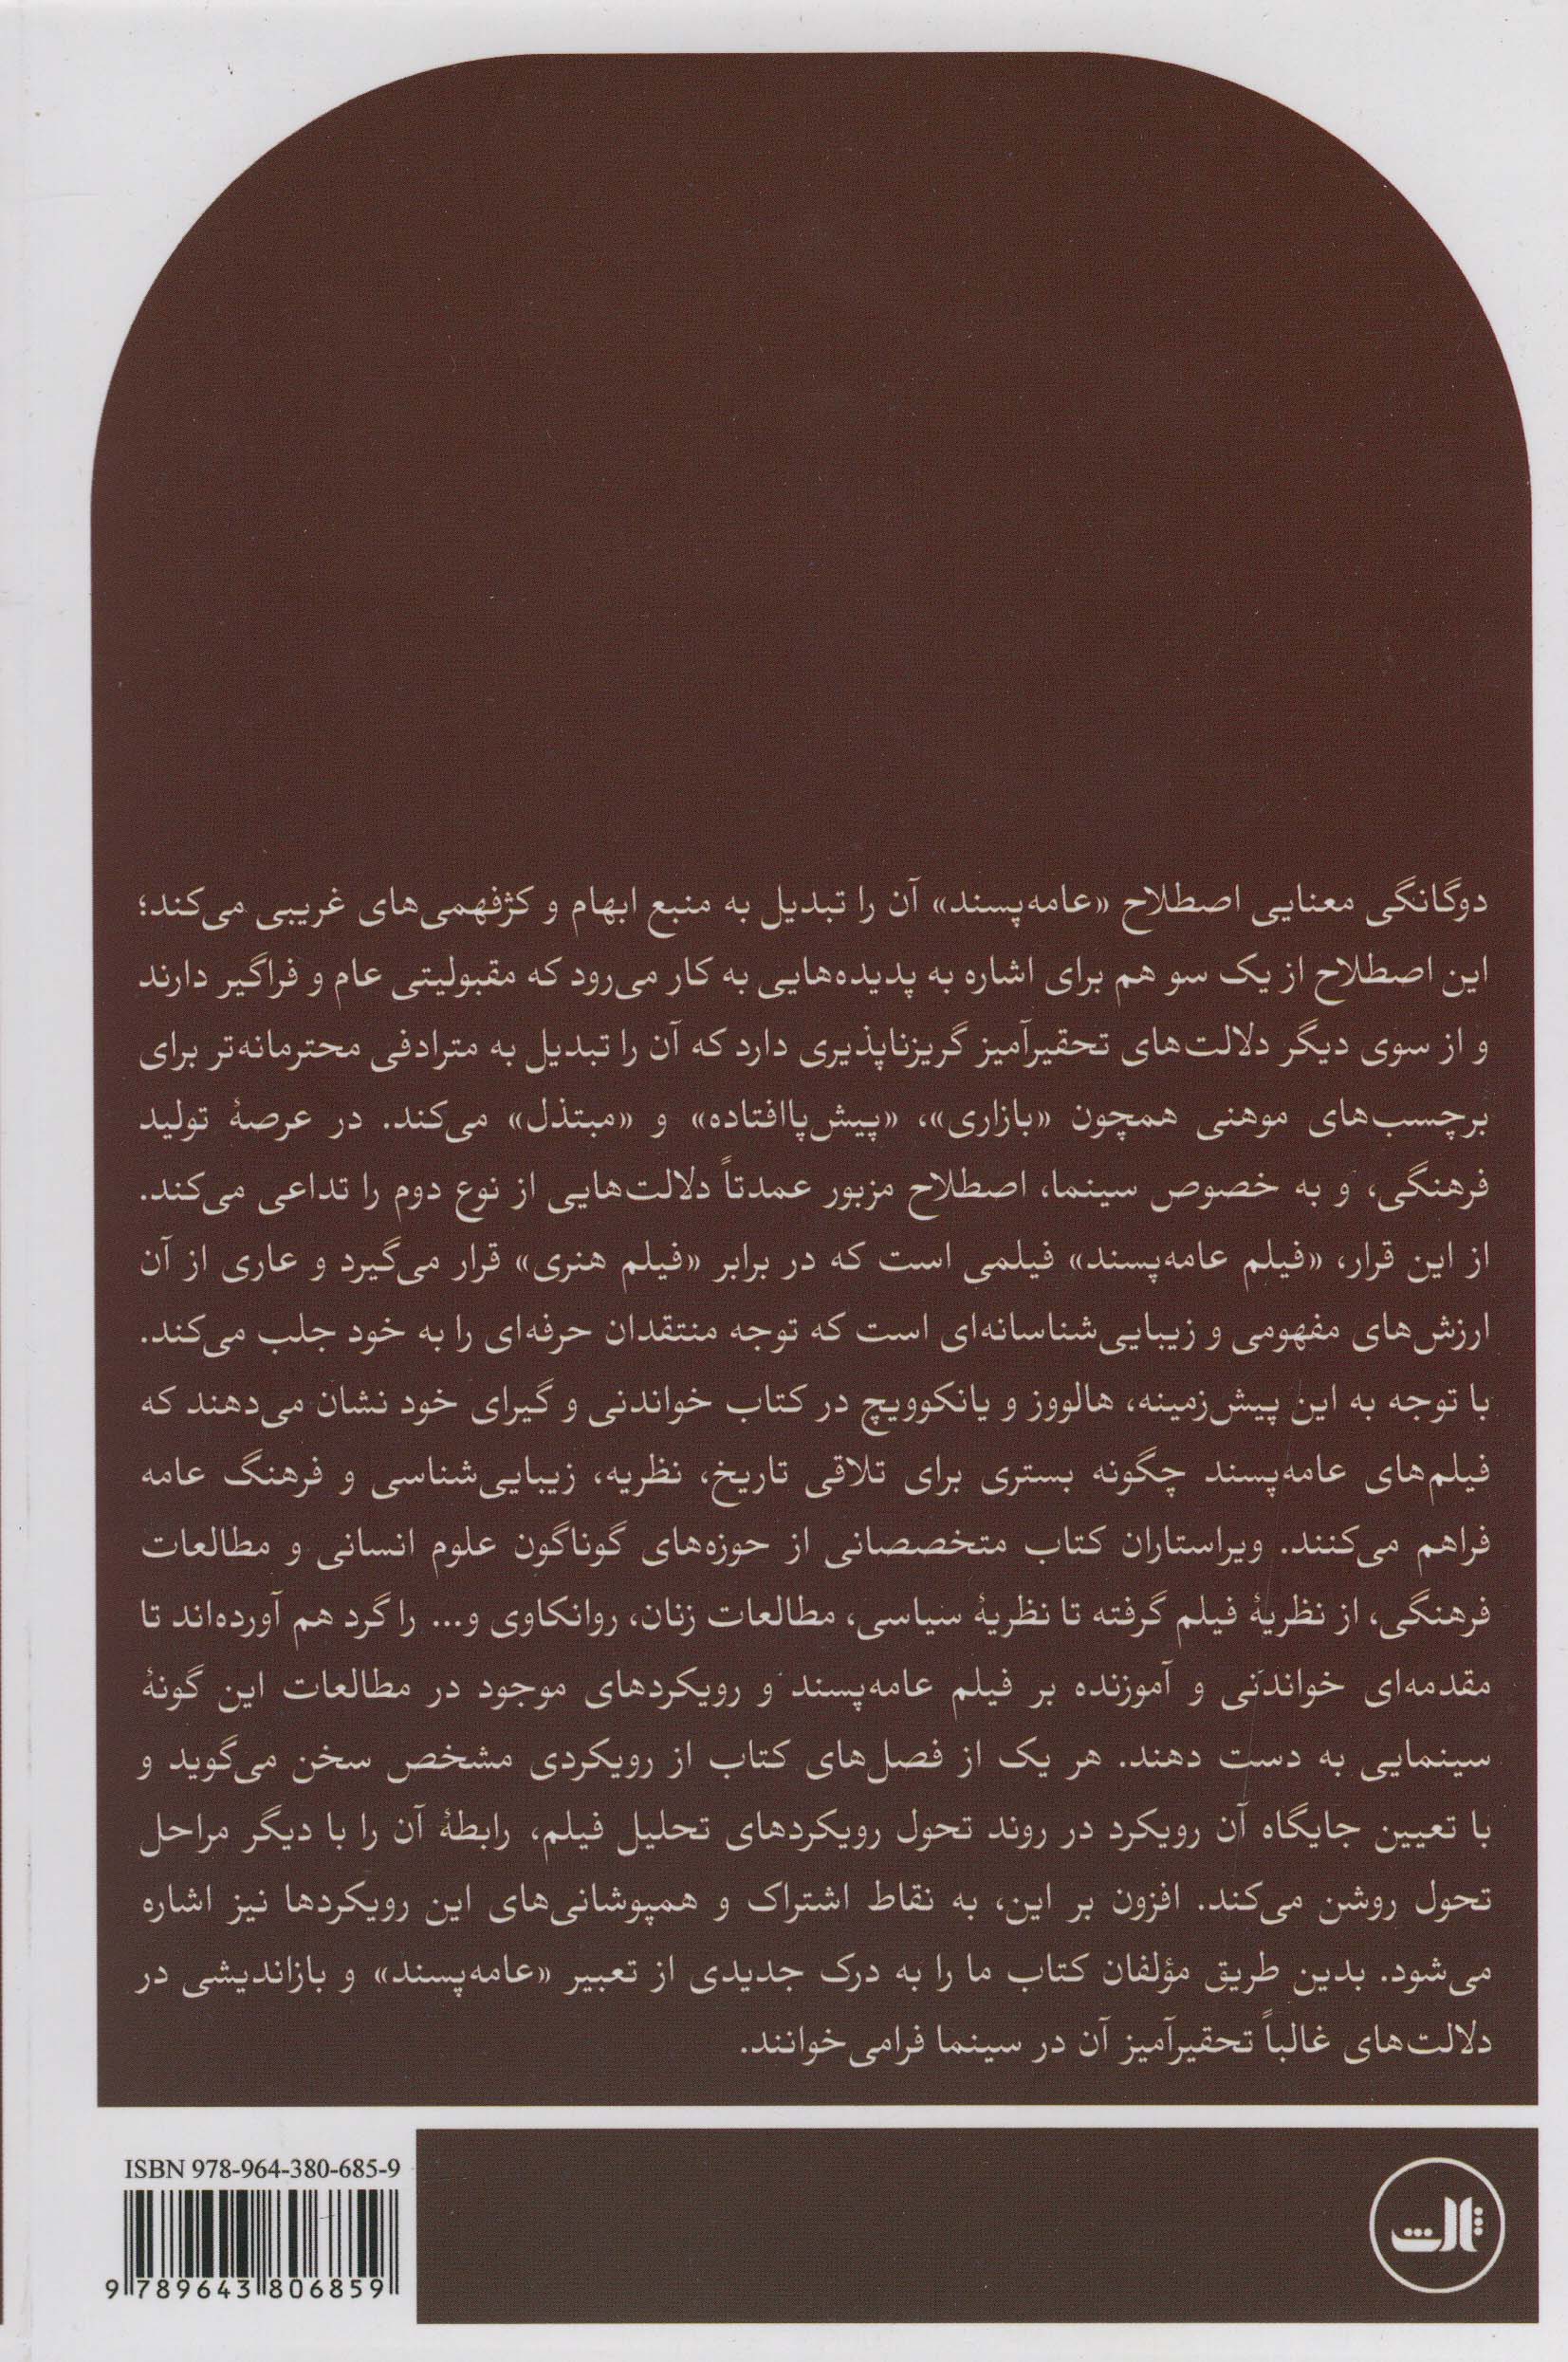 دوگانگی معنایی اصطلاح «عامه‌پسند» آن را تبدیل به منبع ابهام و کژفهمی‌های غریبی می‌کند؛
این اصطلاح از یک سو هم برای اشاره به پدیده‌هایی به کار می‌رود که مقبولیتی عام و فراگیر دارند
و از سوی دیگر دلالت‌های تحقیرآمیز گریزناپذیری دارد که آن را تبدیل به مترادفی محترمانه‌تر برای
برچسب‌های موهنی همچون «بازاری»، «پیش‌پاافتاده» و «مبتذل» می‌کند. در عرصۀ تولید
فرهنگی، و به خصوص سینما، اصطلاح مزبور عمدتاً دلالت‌هایی از نوع دوم را تداعی می‌کند.
از این قرار، «فیلم عامه‌پسند» فیلمی است که در برابر «فیلم هنری» قرار می‌گیرد و عاری از آن
ارزش‌های مفهومی و زیبایی‌شناسانه‌ای است که توجه منتقدان حرفه‌ای را به خود جلب می‌کند.
با توجه به این پیش‌زمینه، هالووز و یانکوویچ در کتاب خواندنی و گیرای خود نشان می‌دهند که
فیلم‌های عامه‌پسند چگونه بستری برای تلاقی تاریخ، نظریه، زیبایی‌شناسی و فرهنگ عامه
فراهم می‌کنند. ویراستاران کتاب متخصصانی از حوزه‌های گوناگون علوم انسانی و مطالعات
فرهنگی، از نظریۀ فیلم گرفته تا نظریۀ سیاسی، مطالعات زنان، روانکاوی و... را گرد هم آورده‌اند تا
مقدمه‌ای خواندنی و آموزنده بر فیلم عامه‌پسند و رویکردهای موجود در مطالعات این گونۀ
سینمایی به دست دهند. هر یک از فصل‌های کتاب از رویکردی مشخص سخن می‌گوید و
با تعیین جایگاه آن رویکرد در روند تحول رویکردهای تحلیل فیلم، رابطۀ آن را با دیگر مراحل
تحول روشن می‌کند. افزون بر این، به نقاط اشتراک و همپوشانی‌های این رویکردها نیز اشاره
می‌شود. بدین طریق مؤلفان کتاب ما را به درک جدیدی از تعبیر «عامه‌پسند» و بازاندیشی در
دلالت‌های غالباً تحقیرآمیز آن در سینما فرامی‌خوانند.
ثالث
ISBN 978-964-380-685-9
9 789643 806859